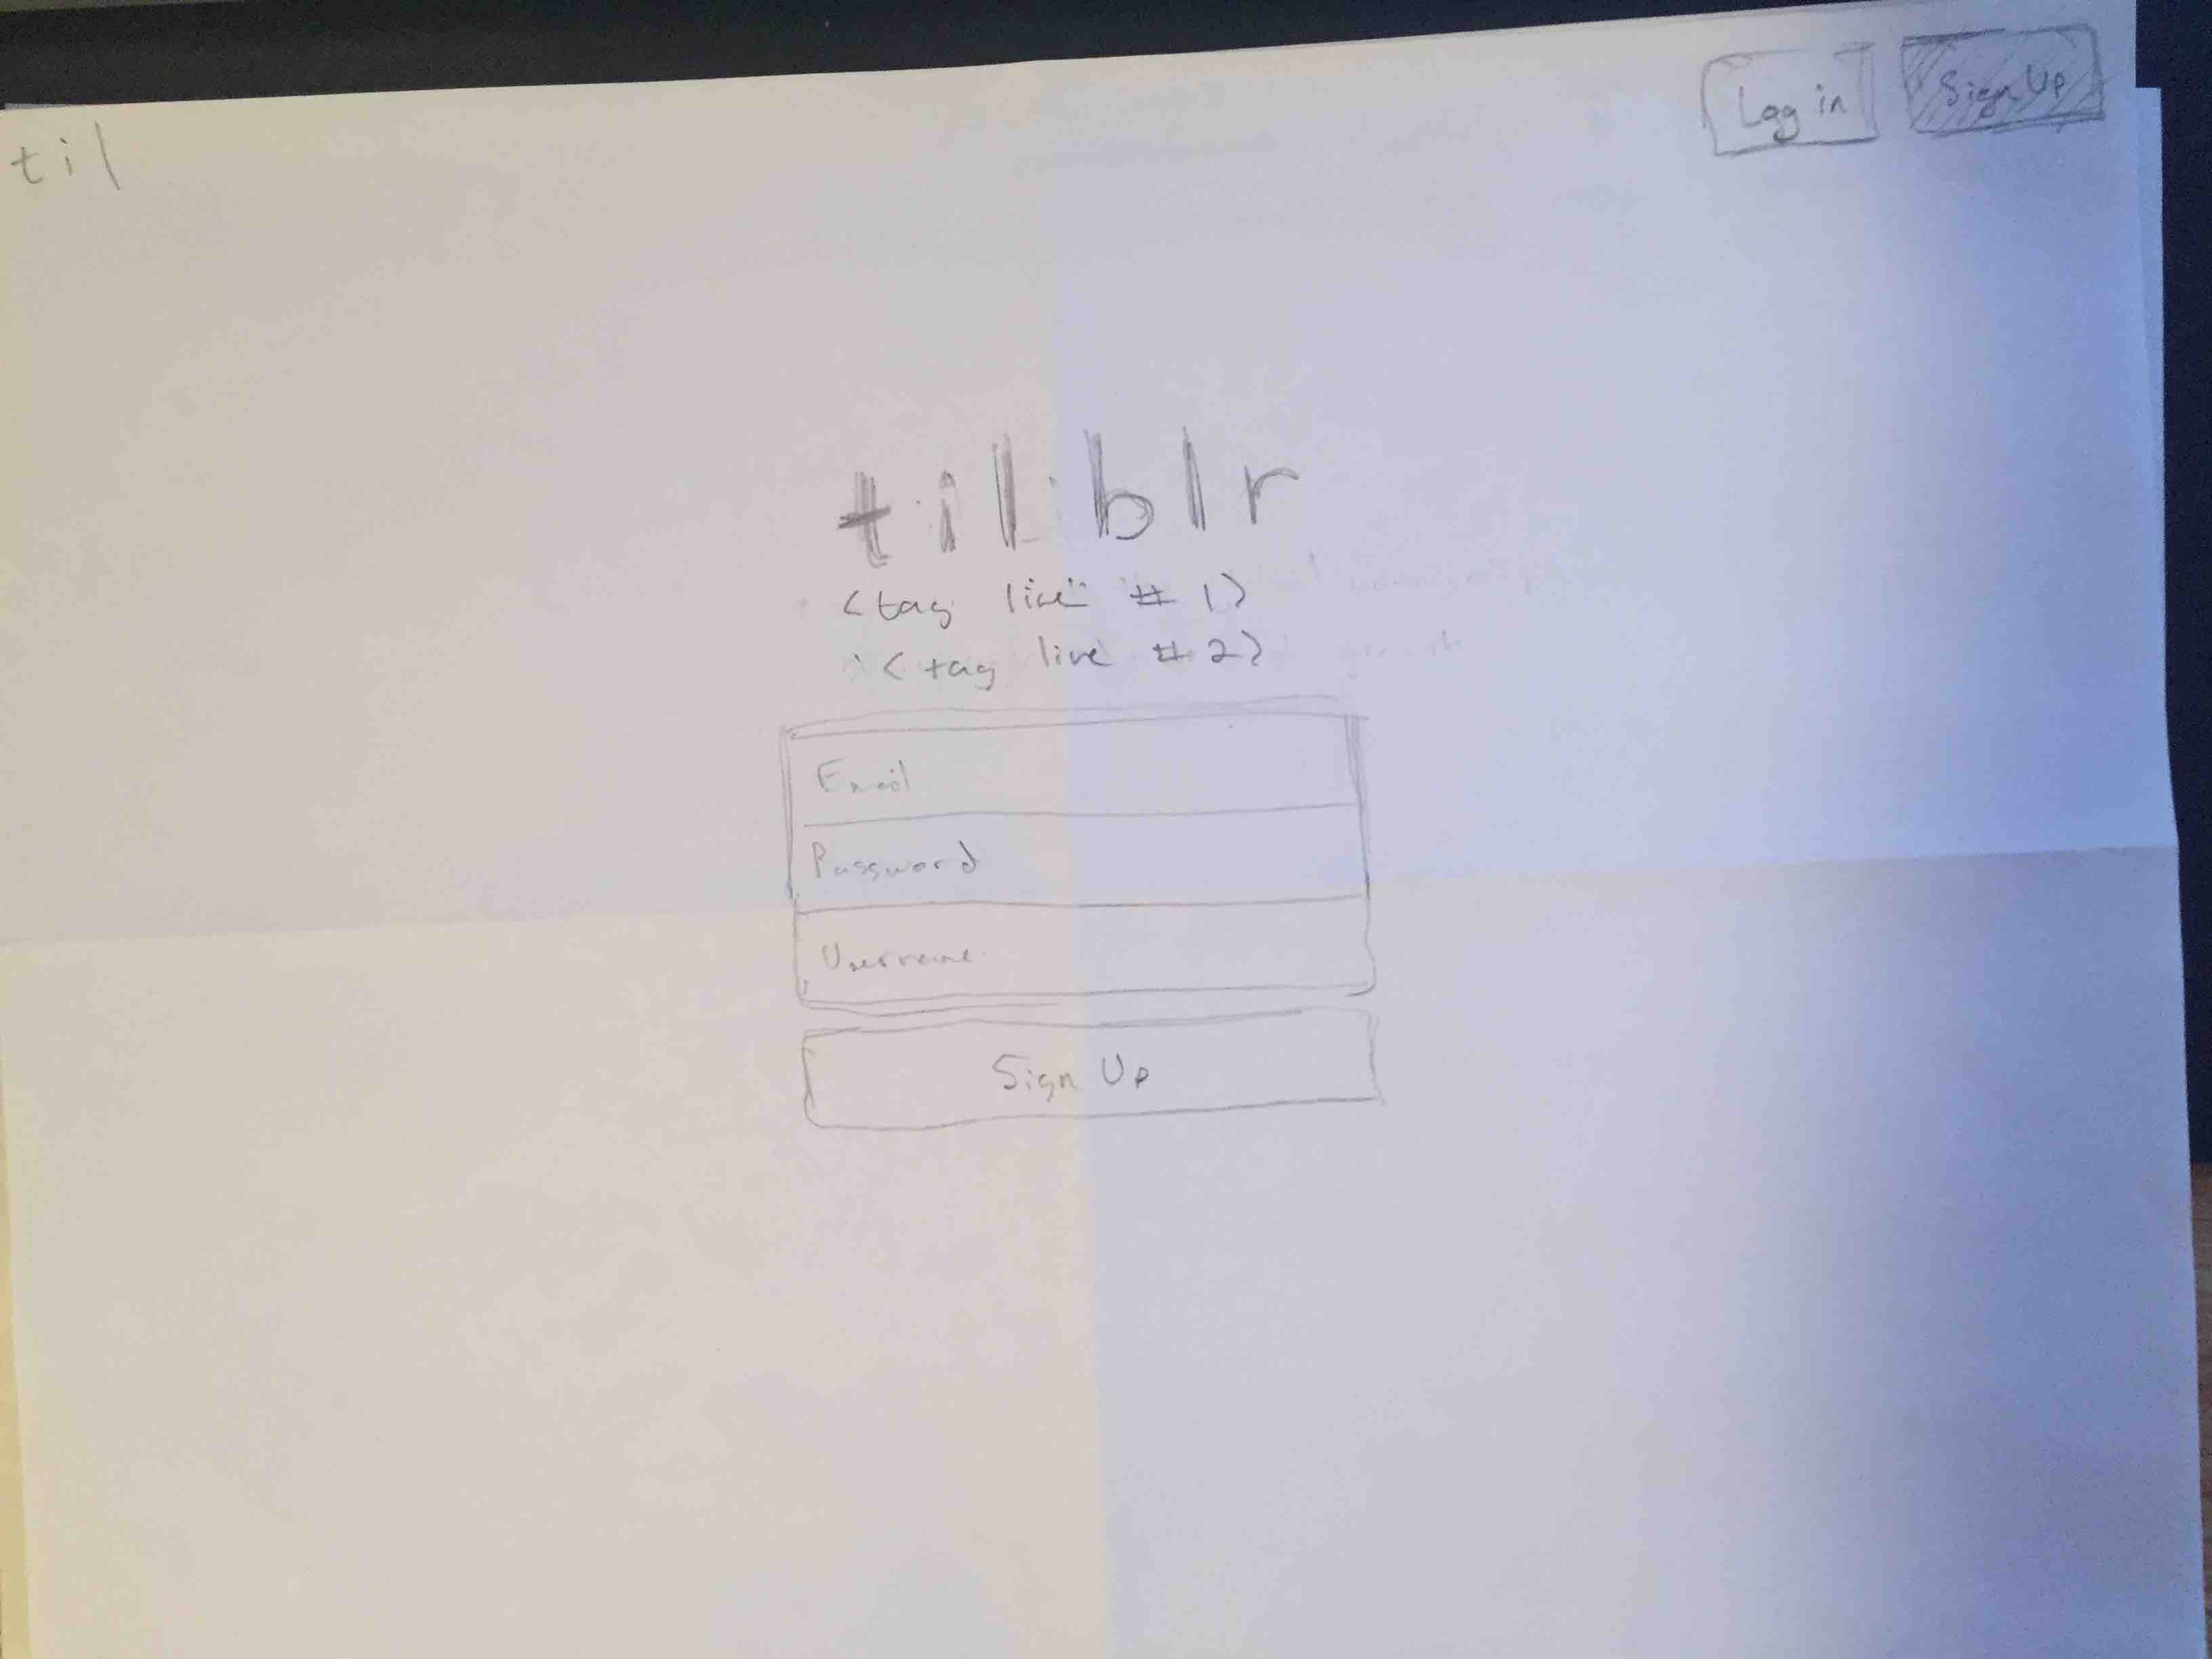 til
Log in
Sign Up
tilblr
<tag line #1>
<tag line #2>
Email
Password
Username
Sign Up